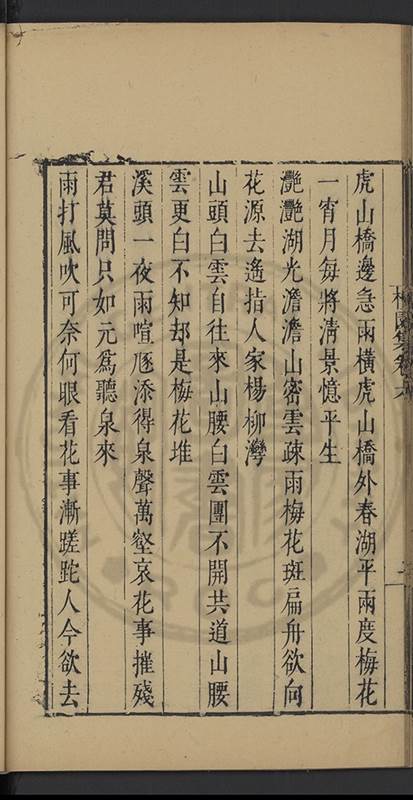 虎山橋邊急雨橫虎山橋外春湖平兩度梅花
一宵月每將清景憶平生
灔灔湖光澹澹山密雲疎雨梅花斑扁舟欲向
花源去遙指人家楊柳灣
山頭白雲自往來山腰白雲團不開共道山腰
雲更白不知却是梅花堆
溪頭一夜雨喧豗添得泉聲萬壑哀花事摧殘
君莫問只如元爲聽泉來
雨打風吹可奈何眼看花事漸蹉跎人今欲去